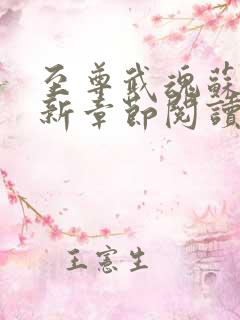 至尊武魂蘇
新章節閱讀
王憲生